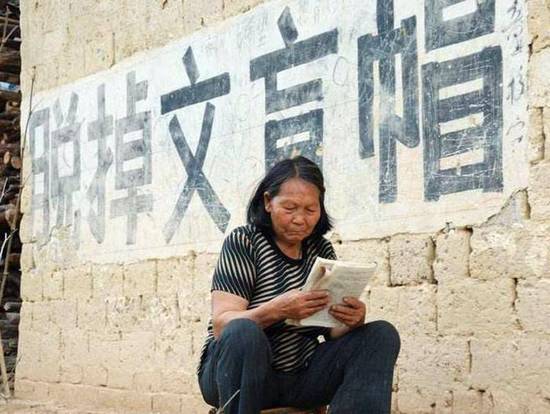 脱掉文盲帽